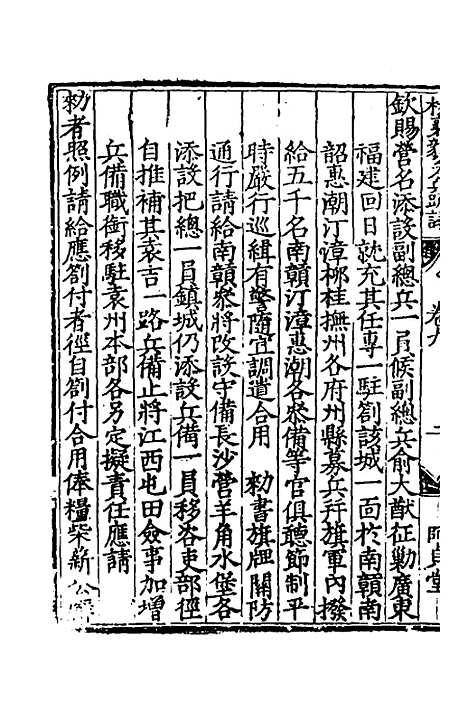 欽賜營名添設副總兵一員候副總兵俞大猷征勦廣東
福建回日就充其任專一駐劄該城一面於南贛南
韶惠潮汀漳郴桂撫州各府州縣募兵幷旗軍內撥
給五千名南贛汀漳惠潮各叅備等官俱聽節制平
時嚴行巡緝有警隨宜調遣合用 勑書旗牌關防
通行請給南贛叅將改設守備長沙營羊角水堡各
添設把總一員鎮城仍添設兵備一員移咨吏部徑
自推補其袁吉一路兵備止將江西屯田僉事加增
兵備職銜移駐袁州本部各另定擬責任應請
勑者照例請給應劄付者徑自劄付合用俸糧柴薪
卷九